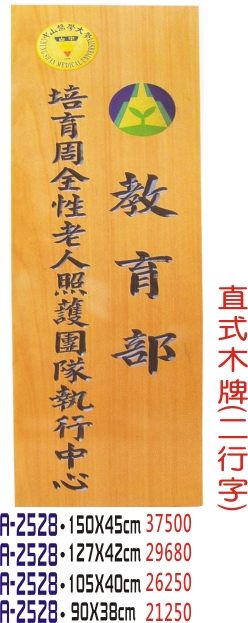 中山醫學大學
CHUNG SHAN MEDICAL UNIVERSITY
中山
教育部
培育周全性老人照護團隊執行中心
直式木牌(二行字)
A-2528・150X45cm 37500
A-2528・127X42cm 29680
A-2528・105X40cm 26250
A-2528・90X38cm 21250